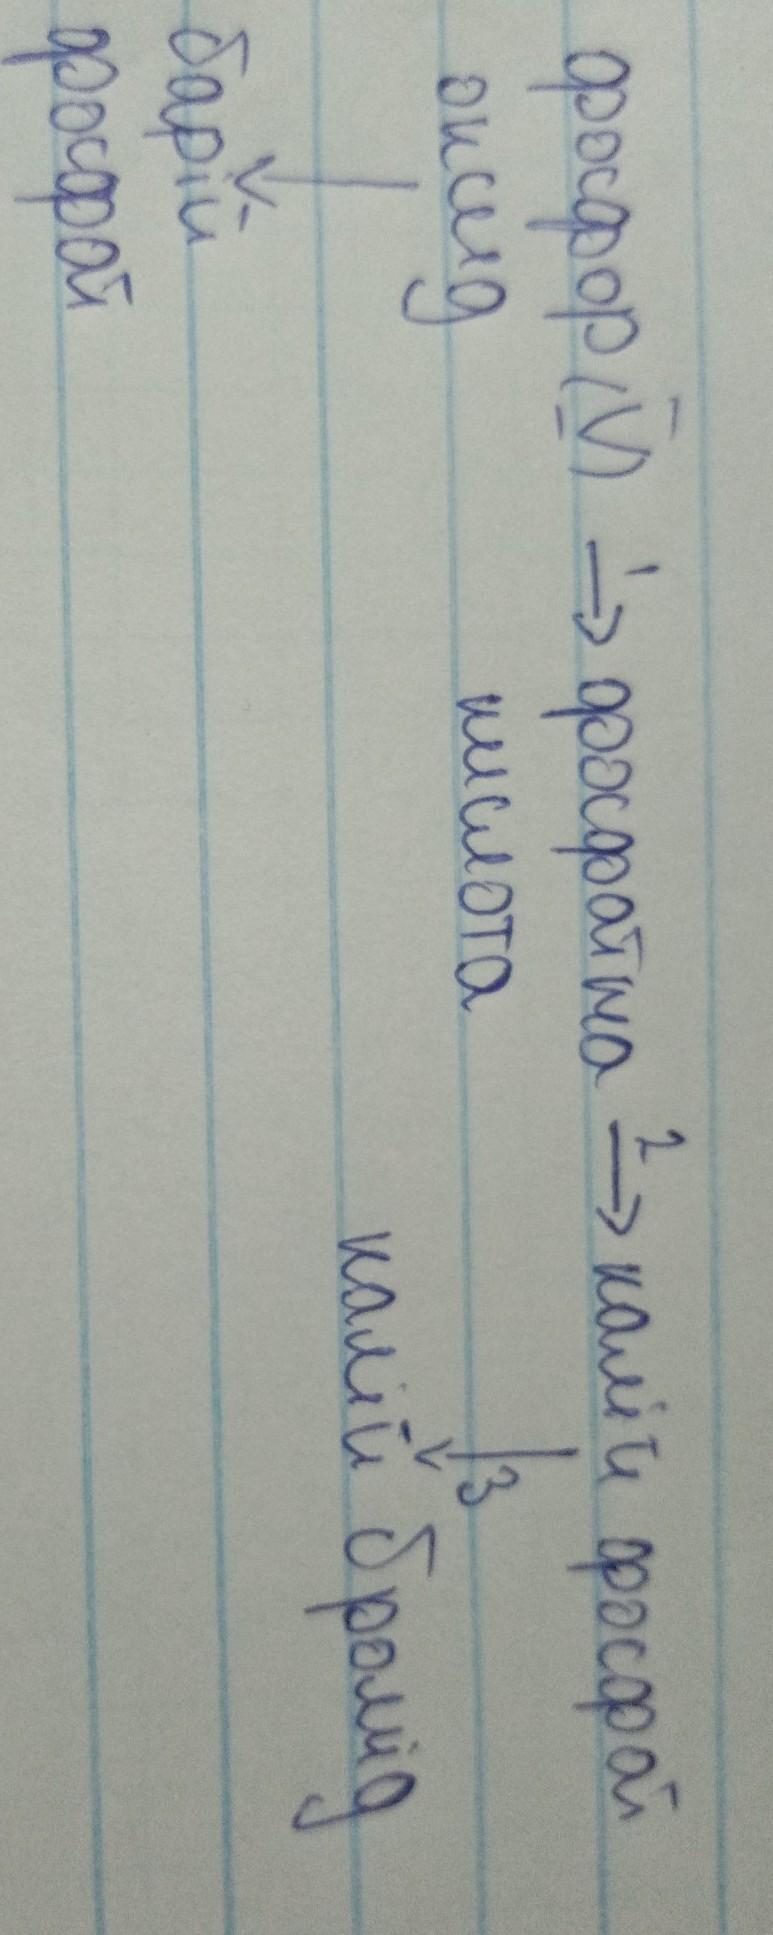 фосфор (V) →¹ фосфатна →² калій фосфат
оксид кислота ↓ 3
↓ калій бромід
барій
фосфат